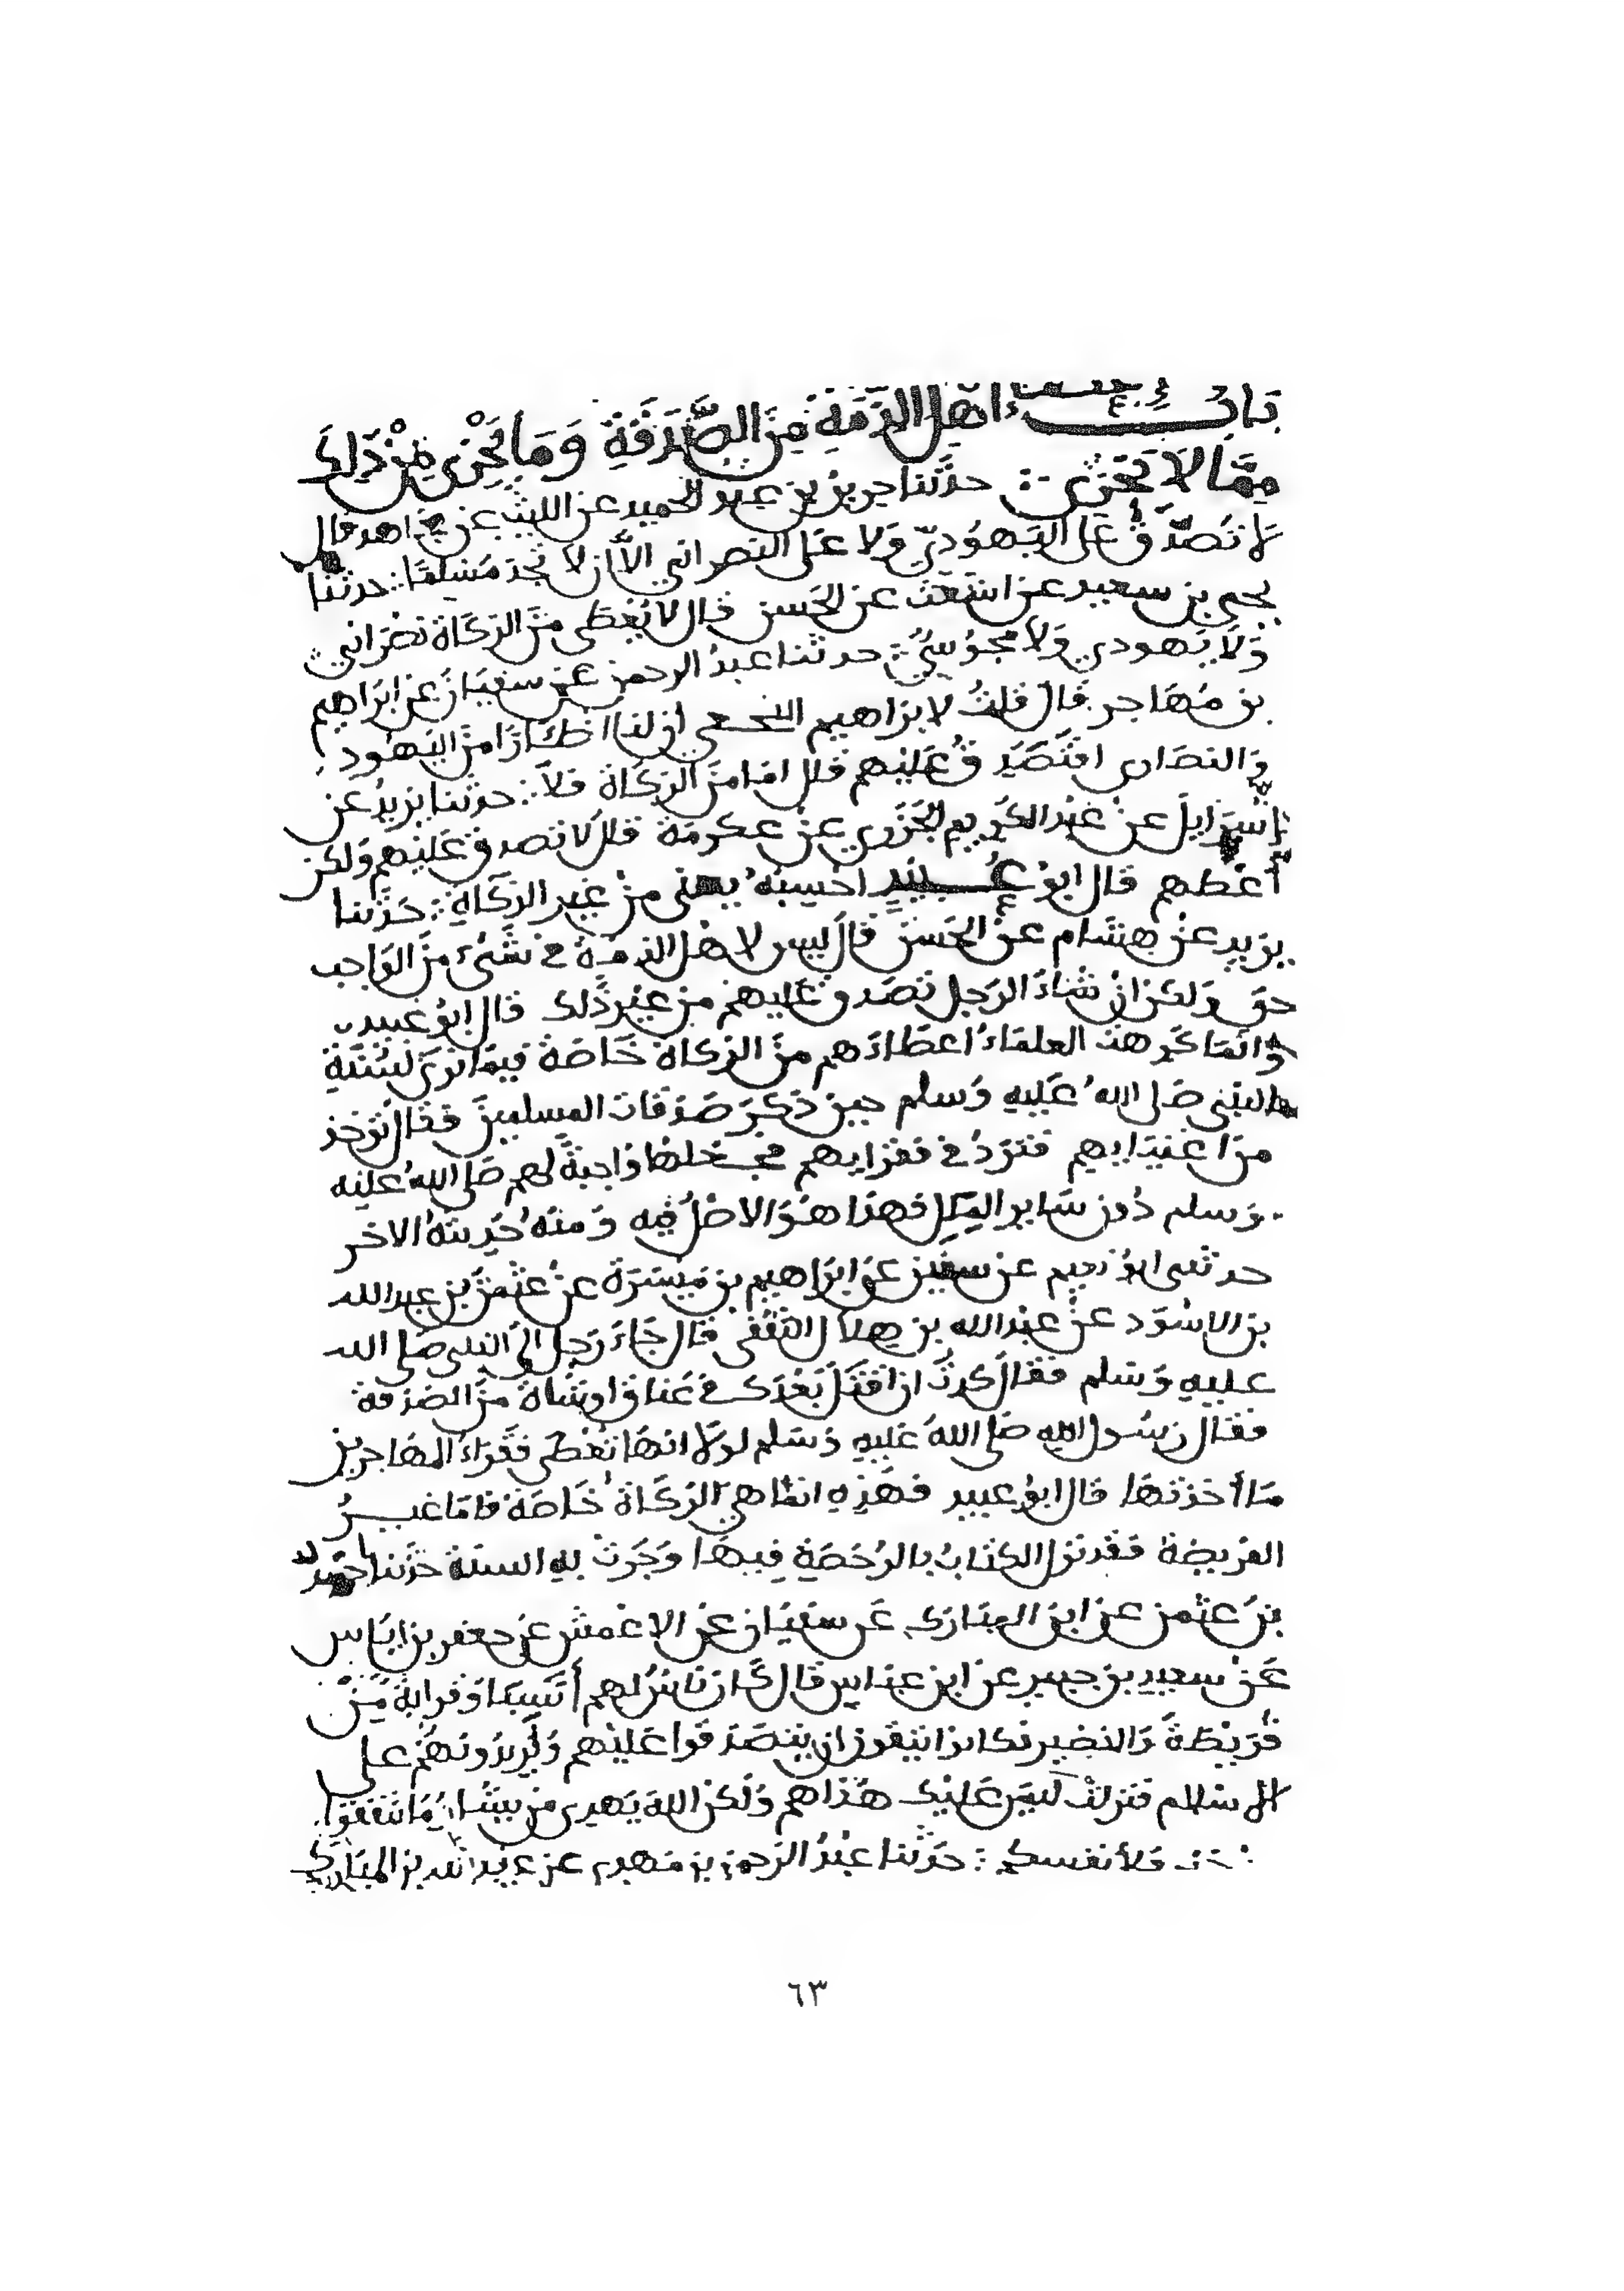 باب إعطاء اهل الذمة من الصدقة وما يجزي من ذلك
مما لا يجزي حدثنا جرير بن عبد الحميد عن الليث عن مجاهد قال
لا تصدق على اليهودي ولا على النصراني الا ان لا تجد مسلما حدثنا
يحيى بن سعيد عن اشعث عن الحسن قال لا يعطى من الزكاة نصراني
ولا يهودي ولا مجوسي حدثنا عبد الرحمن عن سفيان عن ابراهيم
بن مهاجر قال قلت لابراهيم النخعي ان لنا اظارا من اليهود
والنصارى افتصدق عليهم قال اما من الزكاة فلا حدثنا يزيد عن
اسرايل عن عبد الكريم الجزري عن عكرمة قال لا تصدق عليهم ولكن
أعطهم قال ابو عبيد احسبه يعني من غير الزكاة حدثنا
يزيد عن هشام عن الحسن قال ليس لاهل الذمة في شيء من الواجب
حق ولكن ان شاء الرجل تصدق عليهم من غير ذلك قال ابو عبيد
وانما كرهت العلماء اعطاءهم من الزكاة خاصة فيما نرى لسنة
النبي صلى الله عليه وسلم حين ذكر صدقات المسلمين فقال تؤخذ
من اغنيايهم فترد في فقرايهم فجعلها واجبة لهم صلى الله عليه
وسلم دون ساير الملل فهذا هو الاصل فيه ومنه حديثه الاخر
حدثني ابو نعيم عن سفين عن ابراهيم بن ميسرة عن عثمن بن عبد الله
بن الاسود عن عبد الله بن هلال الثقفي قال جاء رجل الى النبي صلى الله
عليه وسلم فقال كدت ان اقتل بعدك في عناق او شاة من الصدقة
فقال رسول الله صلى الله عليه وسلم لولا انها تعطى فقراء المهاجرين
ما أخذتها قال ابو عبيد فهذه انما هي الزكاة خاصة فاما غير
الفريضة فقد نزل الكتاب بالرخصة فيها وجرت به السنة حدثنا احمد
بن عثمن عن ابن المبارك عن سفيان عن الاعمش عن جعفر بن اياس
عن سعيد بن جبير عن ابن عباس قال كان ناس لهم أنسبا وقرابة من
قريظة والنضير فكانوا يتقون ان يتصدقوا عليهم ويريدونهم على
الاسلام فنزلت ليس عليك هداهم ولكن الله يهدي من يشاء وما تنفقوا
من خير فلأنفسكم حدثنا عبد الرحمن بن مهدي عن عبد الله بن المبارك
٦٣